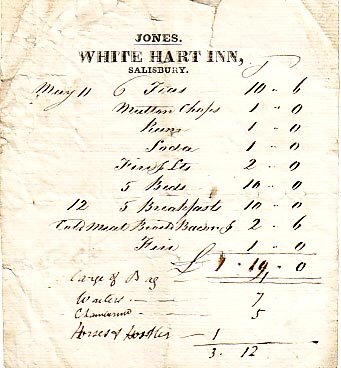 JONES.
WHITE HART INN,
SALISBURY.
May 11 6 Teas 10 .. 6
Mutton Chops 1 .. 0
Rum 1 .. 0
Soda 1 .. 0
Fire & Lts 2 .. 0
5 Beds 10 .. 0
12 5 Breakfasts 10 .. 0
Cold Meat Bacon & 2 .. 6
Fire 1 .. 0
£ 1 .. 19 .. 0
Waiters 7
5
Horses & 1
3 .. 12